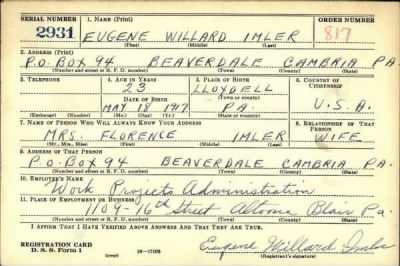 SERIAL NUMBER 1. NAME (Print) ORDER NUMBER
2931 EUGENE WILLARD IMLER 817
(First) (Middle) (Last)
2. ADDRESS (Print)
P.O. BOX 94 BEAVERDALE CAMBRIA PA.
(Number and street or R. F. D. number) (Town) (County) (State)
3. TELEPHONE 4. AGE IN YEARS 5. PLACE OF BIRTH 6. COUNTRY OF CITIZENSHIP
23 LLOYDELL
DATE OF BIRTH (Town or county)
MAY 18 1917 PA. U.S.A.
(Exchange) (Number) (Mo.) (Day) (Yr.) (State or country)
7. NAME OF PERSON WHO WILL ALWAYS KNOW YOUR ADDRESS 8. RELATIONSHIP OF THAT PERSON
MRS. FLORENCE IMLER WIFE
(Mr., Mrs., Miss) (First) (Middle) (Last)
9. ADDRESS OF THAT PERSON
P.O. BOX 94 BEAVERDALE CAMBRIA PA.
(Number and street or R. F. D. number) (Town) (County) (State)
10. EMPLOYER'S NAME
Work Projects Administration
11. PLACE OF EMPLOYMENT OR BUSINESS
1109-16th Street Altoona Blair Pa.
(Number and street or R. F. D. number) (Town) (County) (State)
I AFFIRM THAT I HAVE VERIFIED ABOVE ANSWERS AND THAT THEY ARE TRUE.
REGISTRATION CARD
D. S. S. Form 1 (over) 16-17105 Eugene Willard Imler
(Registrant's signature)